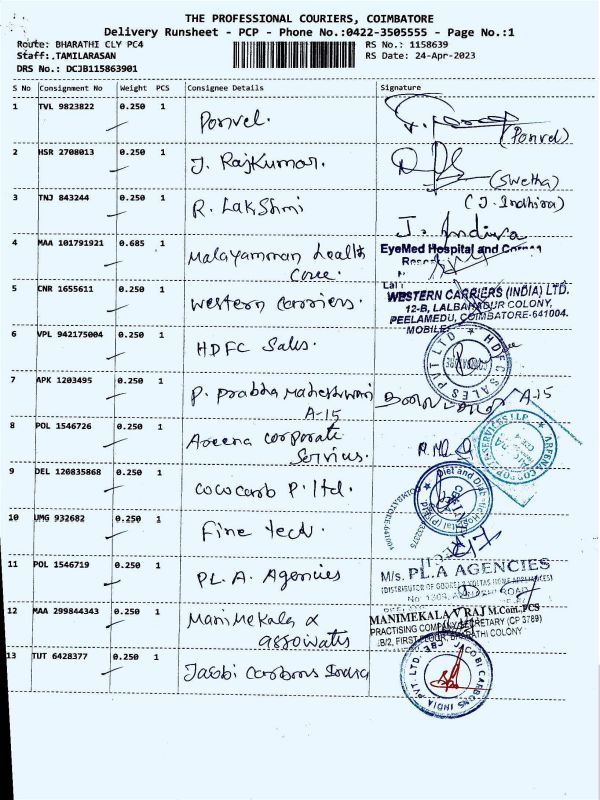 THE PROFESSIONAL COURIERS, COIMBATORE
Delivery Runsheet - PCP - Phone No.:0422-3505555 - Page No.:1
Route: BHARATHI CLY PC4
RS No.: 1158639
Staff:.TAMILARASAN
RS Date: 24-Apr-2023
DRS No.: DCJB115863901
S No Consignment No Weight PCS Consignee Details Signature
1 TVL 9823822 0.250 1 Ponvel.
(Ponvel)
2 HSR 2708013 0.250 1 J. Rajkumar.
(Swetha)
3 TNJ 843244 0.250 1 R. Lakshmi (J. Indhira)
J. Indira
4 MAA 101791921 0.685 1 Malayamman health
care.
EyeMed Hospital and
5 CNR 1655611 0.250 1 Western carriers.
WESTERN CARRIERS (INDIA) LTD.
12-B, LALBAHADUR COLONY,
PEELAMEDU, COIMBATORE-641004.
MOBILE:
6 VPL 942175004 0.250 1 HDFC Sales.
HDFC SALES PVT LTD
7 APK 1203495 0.250 1 P. Prabha Maheshwari
A-15
A-15
8 POL 1546726 0.250 1 Areena corporate
Servius.
9 DEL 120835868 0.250 1 Cococarb P. ltd.
10 UMG 932682 0.250 1 Fine tech.
11 POL 1546719 0.250 1 PL.A. Agencies
M/s. PL.A AGENCIES
12 MAA 299844343 0.250 1 Manimekala &
associates
MANIMEKALA V RAJ M.Com.,FCS
PRACTISING COMPANY SECRETARY (CP 3789)
B/2, FIRST FLOOR, BHARATHI COLONY
13 TUT 6428377 0.250 1 Jacobi Carbons India
JACOBI CARBONS INDIA PVT. LTD.